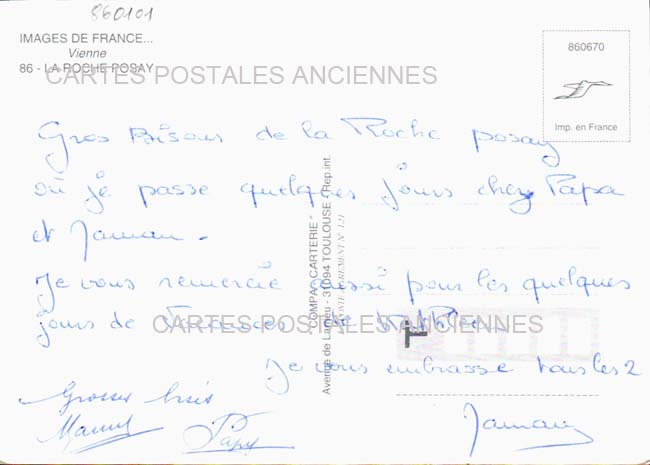 860101
IMAGES DE FRANCE...
Vienne
86 - LA ROCHE POSAY
CARTES POSTALES ANCIENNES
860670
Imp. en France
Gros Bisous de la Roche posay
où je passe quelques jours chez Papa
et
Je vous remercie aussi pour les quelques
jours de Vacances
CARTES POSTALES ANCIENNES
Je vous embrasse tous les 2
Grosses bises
"COMPA - CARTERIE"
Avenue de Larrieu - 31094 TOULOUSE - Rep. int.
T